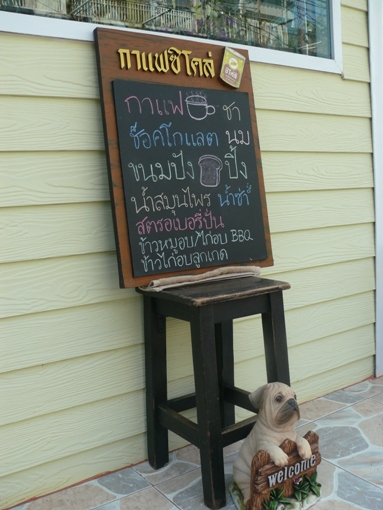 กาแฟซิโคล่
กาแฟ ชา
ช็อคโกแลต นม
ขนมปัง ปิ้ง
น้ำสมุนไพร น้ำซ่าส์
สตรอเบอรี่ปั่น
ข้าวหมูอบ/ไก่อบ BBQ
ข้าวไก่อบลูกเกด
welcome